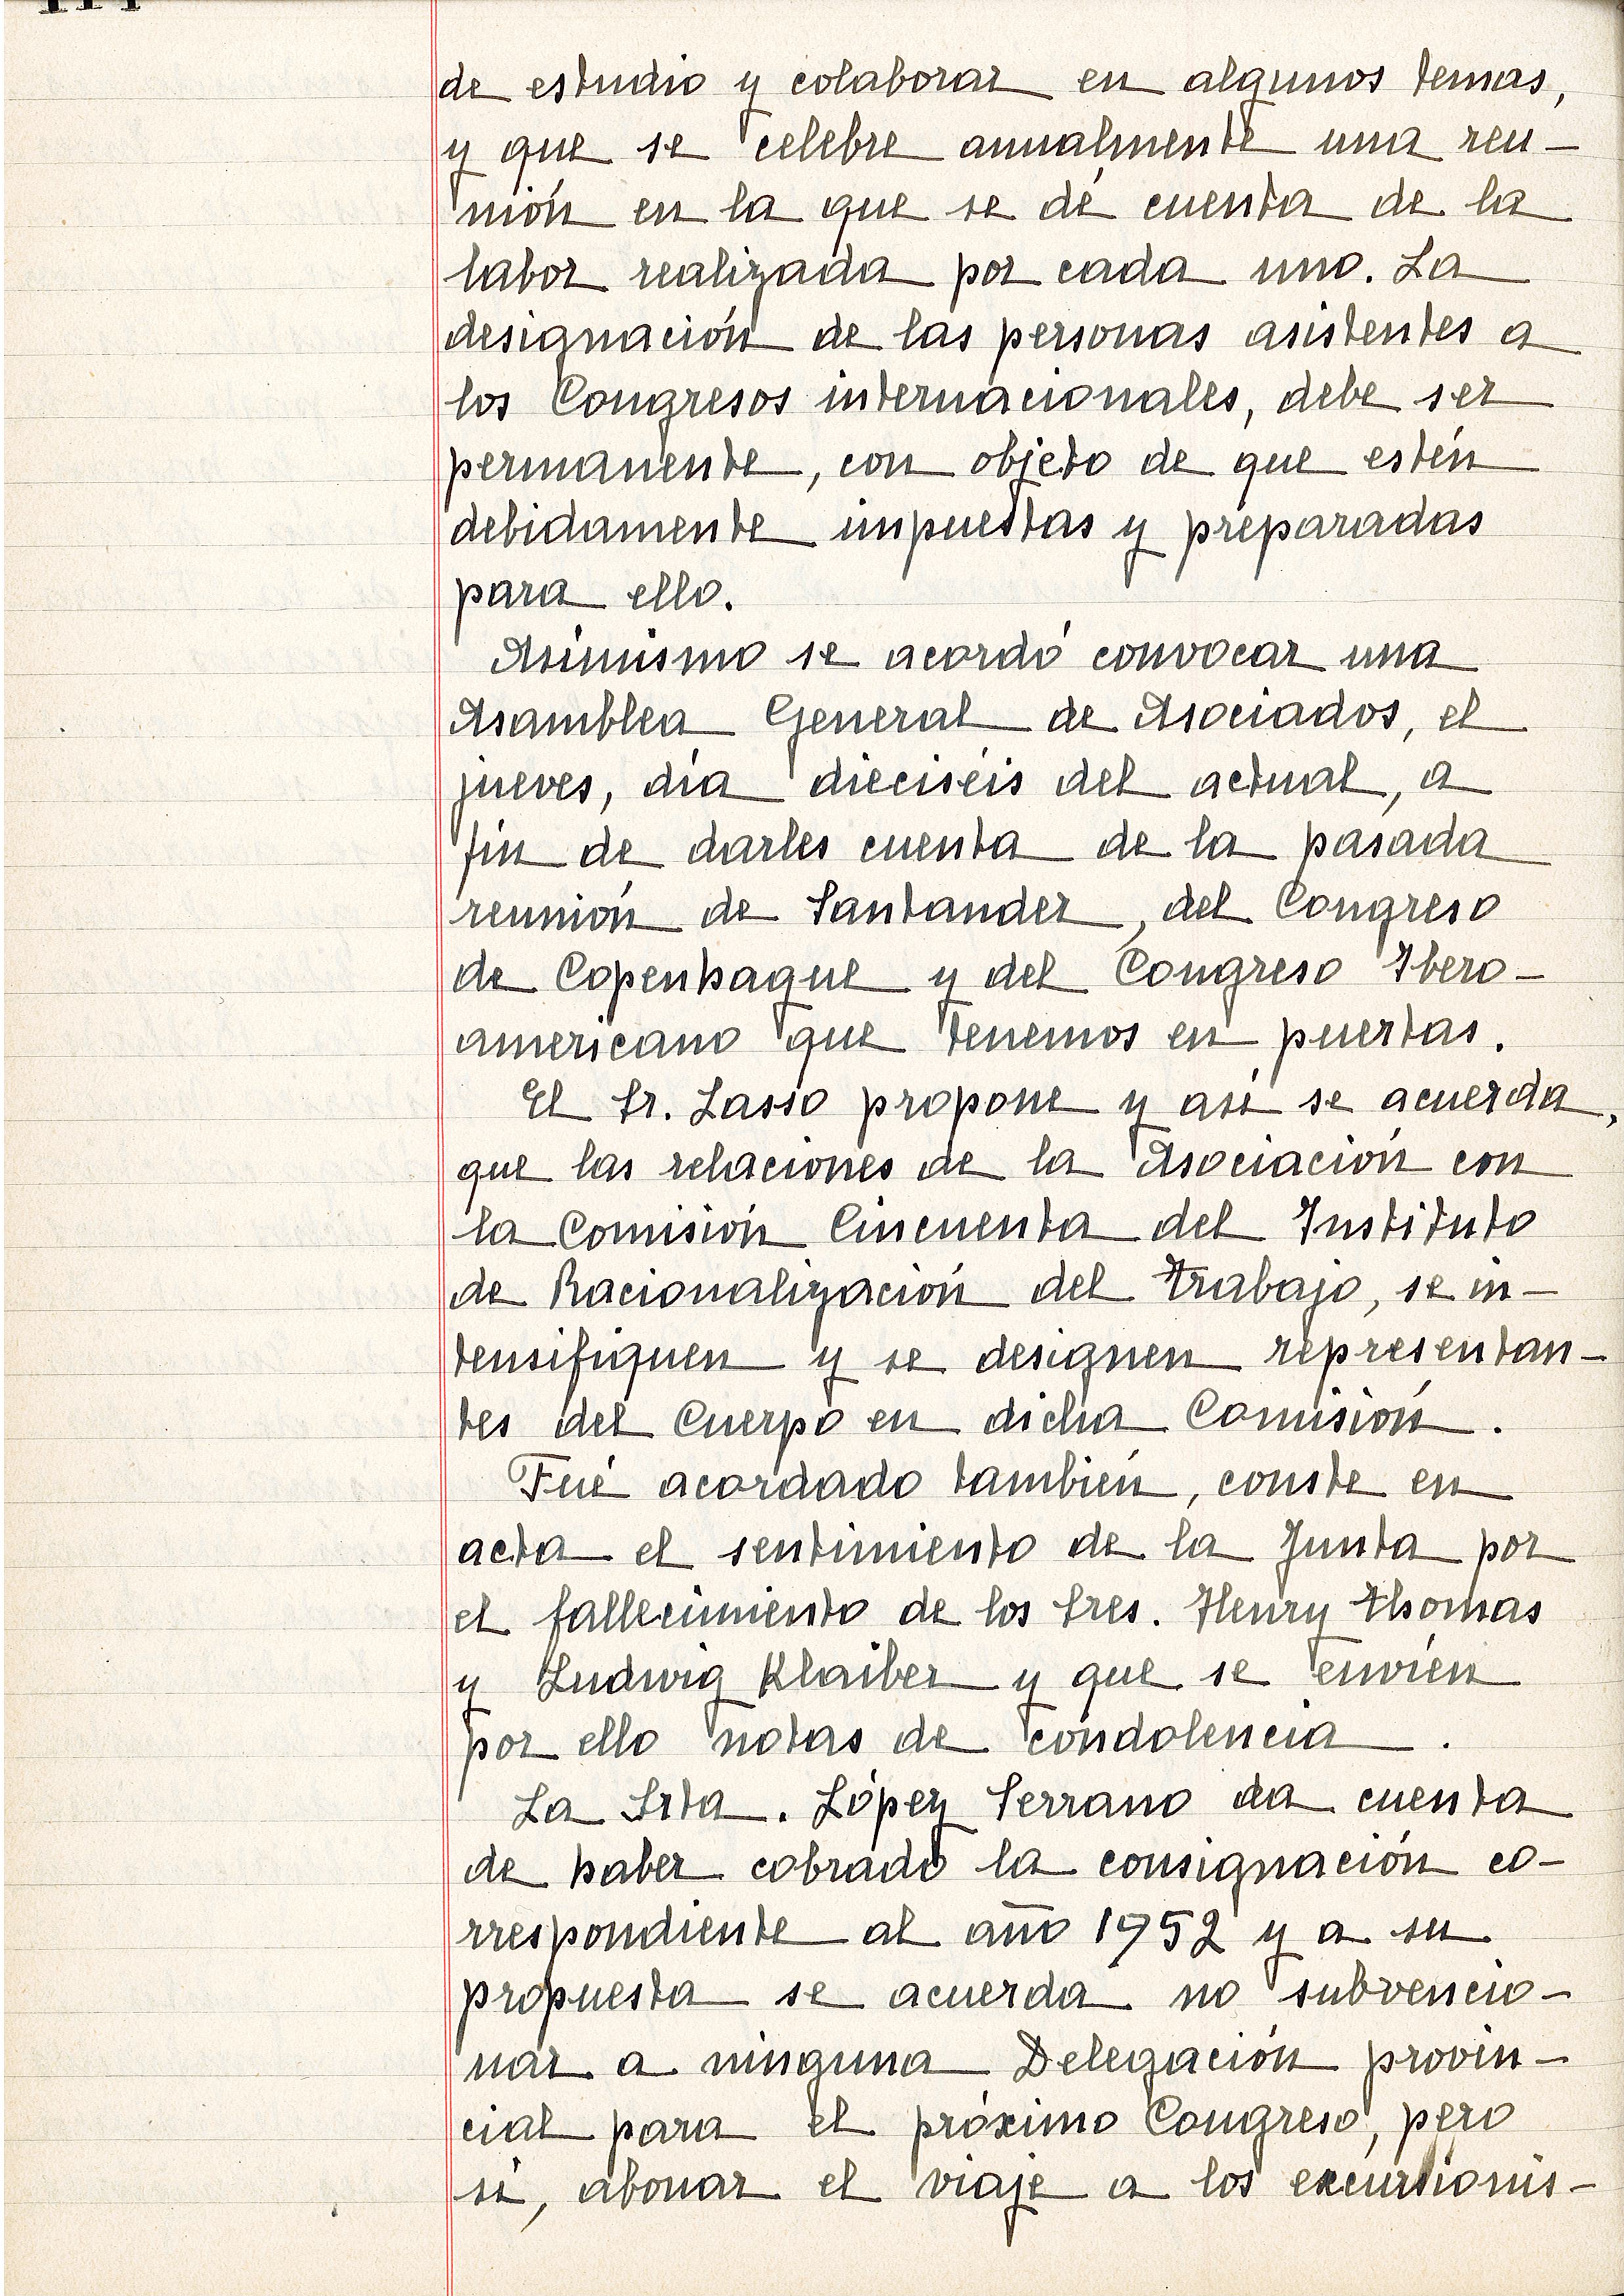 de estudio y colaborar en algunos temas,
y que se celebre anualmente una reu-
nión en la que se dé cuenta de la
labor realizada por cada uno. La
designación de las personas asistentes a
los Congresos internacionales, debe ser
permanente, con objeto de que estén
debidamente impuestas y preparadas
para ello.
Asímismo se acordó convocar una
Asamblea General de Asociados, el
jueves, día dieciséis del actual, a
fin de darles cuenta de la pasada
reunión de Santander, del Congreso
de Copenhague y del Congreso Ibero-
americano que tenemos en puertas.
El Sr. Lasso propone y así se acuerda,
que las relaciones de la Asociación con
la Comisión Cincuenta del Instituto
de Racionalización del Trabajo, se in-
tensifiquen y se designen representan-
tes del Cuerpo en dicha Comisión.
Fué acordado también, conste en
acta el sentimiento de la Junta por
el fallecimiento de los Sres. Henry Thomas
y Ludwig Klaiber y que se envíen
por ello notas de condolencia.
La Srta. López Serrano da cuenta
de haber cobrado la consignación co-
rrespondiente al año 1952 y a su
propuesta se acuerda no subvencio-
nar a ninguna Delegación provin-
cial para el próximo Congreso, pero
sí, abonar el viaje a los excursionis-